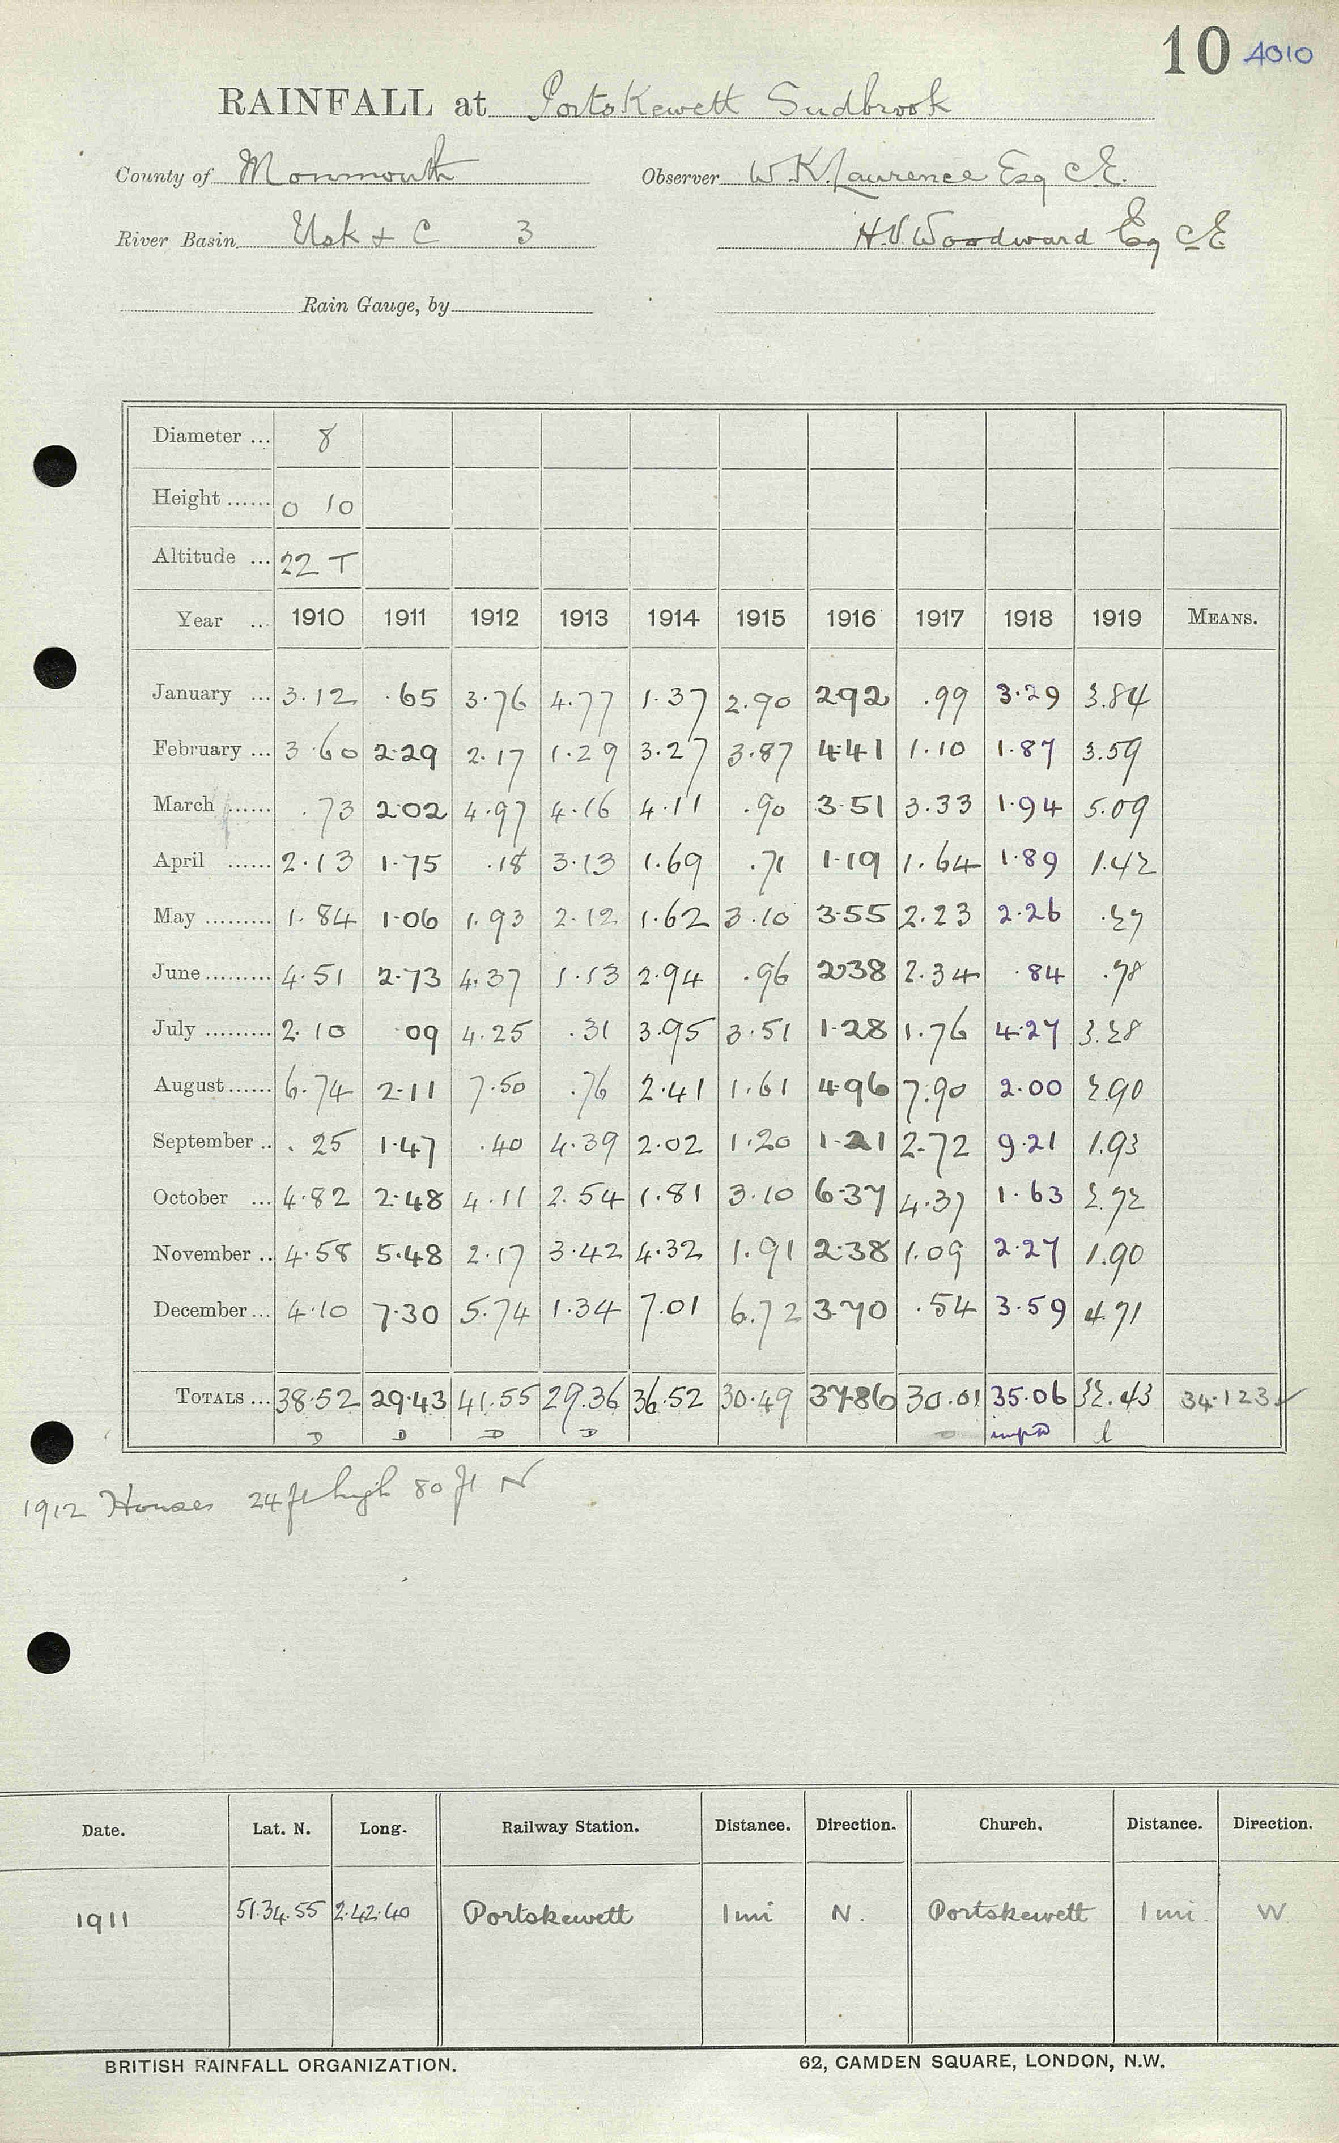 10 4010
RAINFALL at Portskewett Sudbrook
County of Monmouth Observer W.K. Laurence Esq C.E.
River Basin Usk & C 3 H.V Woodward Esq CE
Rain Gauge, by
Diameter ... 8
Height ...... 0 10
Altitude ... 22 T
Year ... 1910 1911 1912 1913 1914 1915 1916 1917 1918 1919 MEANS.
January ... 3.12 .65 3.76 4.77 1.37 2.90 2.92 .99 3.29 3.84
February ... 3.60 2.29 2.17 1.29 3.27 3.87 4.41 1.10 1.87 3.59
March ...... .73 2.02 4.97 4.16 4.11 .90 3.51 3.33 1.94 5.09
April ...... 2.13 1.75 .18 3.13 1.69 .71 1.19 1.64 1.89 1.42
May ......... 1.84 1.06 1.93 2.12 1.62 3.10 3.55 2.23 2.26 .27
June ......... 4.51 2.73 4.37 1.13 2.94 .96 2.38 2.34 .84 .78
July ......... 2.10 .09 4.25 .31 3.95 3.51 1.28 1.76 4.27 3.28
August ...... 6.74 2.11 7.50 .76 2.41 1.61 4.96 7.90 2.00 2.90
September .. .25 1.47 .40 4.39 2.02 1.20 1.21 2.72 9.21 1.93
October ... 4.82 2.48 4.11 2.54 1.81 3.10 6.37 4.37 1.63 2.72
November .. 4.58 5.48 2.17 3.42 4.32 1.91 2.38 1.09 2.27 1.90
December ... 4.10 7.30 5.74 1.34 7.01 6.72 3.70 .54 3.59 4.71
TOTALS ... 38.52 29.43 41.55 29.36 36.52 30.49 37.86 30.01 35.06 32.43 34.123 ✓
D D D D D l
1912 Houses 24 ft high 80 ft N
Date. Lat. N. Long. Railway Station. Distance. Direction. Church. Distance. Direction.
1911 51.34.55 2.42.40 Portskewett 1 mi N. Portskewett 1 mi. W
BRITISH RAINFALL ORGANIZATION. 62, CAMDEN SQUARE, LONDON, N.W.